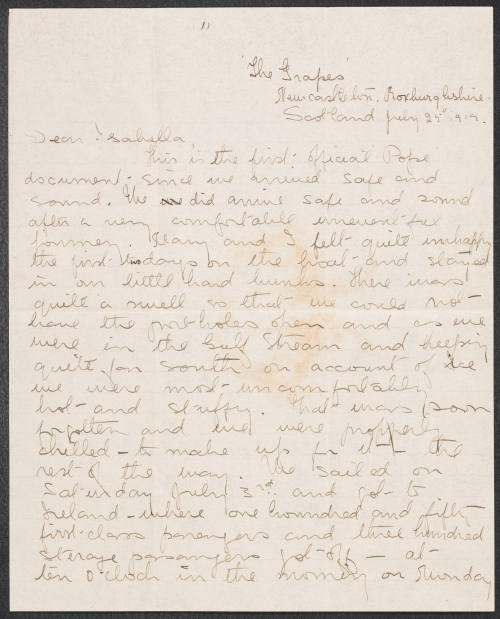 "
'The Grapes'
Newcastleton. Roxburghshire.
Scotland July 25th
Dear Isabella,
This is the first "official" Pope
document - since we arrived safe and
sound. We did arrive safe and sound
after a very comfortable uneventful
journey. and I felt quite unhappy
the first two days on the boat - and stayed
in our little hard bunks. There was
quite a swell so that we could not
have the port holes open and as we
were in the Gulf Stream and keeping
quite far south on account of ice
we were most uncomfortably
hot - and stuffy. That was soon
forgotten and we were properly
chilled - to make up for it - the
rest of the way. We sailed on
Saturday July 3rd. and got to
Ireland - where one houndred and fifty
first-class passengers and three hundred
sterage passangers got off - at
ten O'clock in the morning on Monday